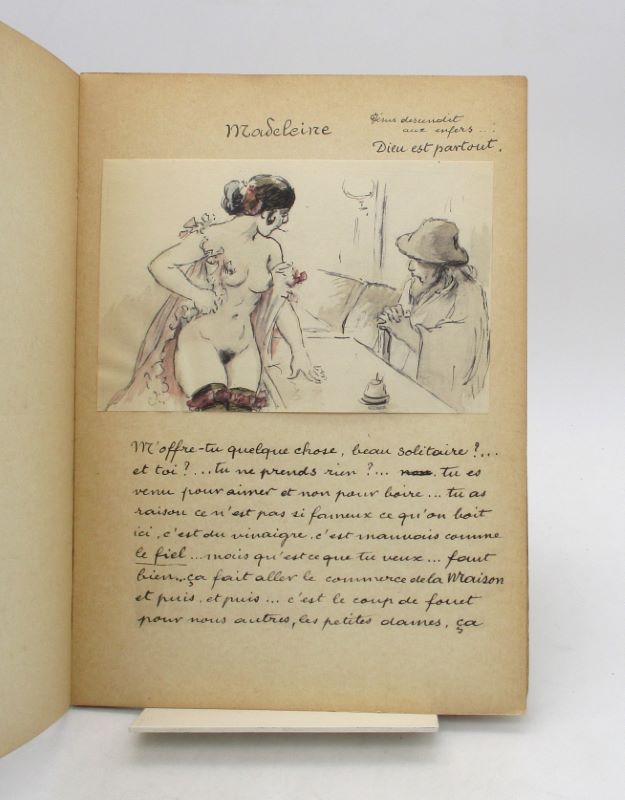 Madeleine
Jésus descendit
aux enfers...
Dieu est partout.
M'offre-tu quelque chose, beau solitaire?...
et toi?... tu ne prends rien?... non. tu es
venu pour aimer et non pour boire... tu as
raison ce n'est pas si fameux ce qu'on boit
ici, c'est du vinaigre, c'est mauvais comme
le fiel... mais qu'est ce que tu veux... faut
bien... ça fait aller le commerce de la Maison
et puis, et puis... c'est le coup de fouet
pour nous autres, les petites dames, ça